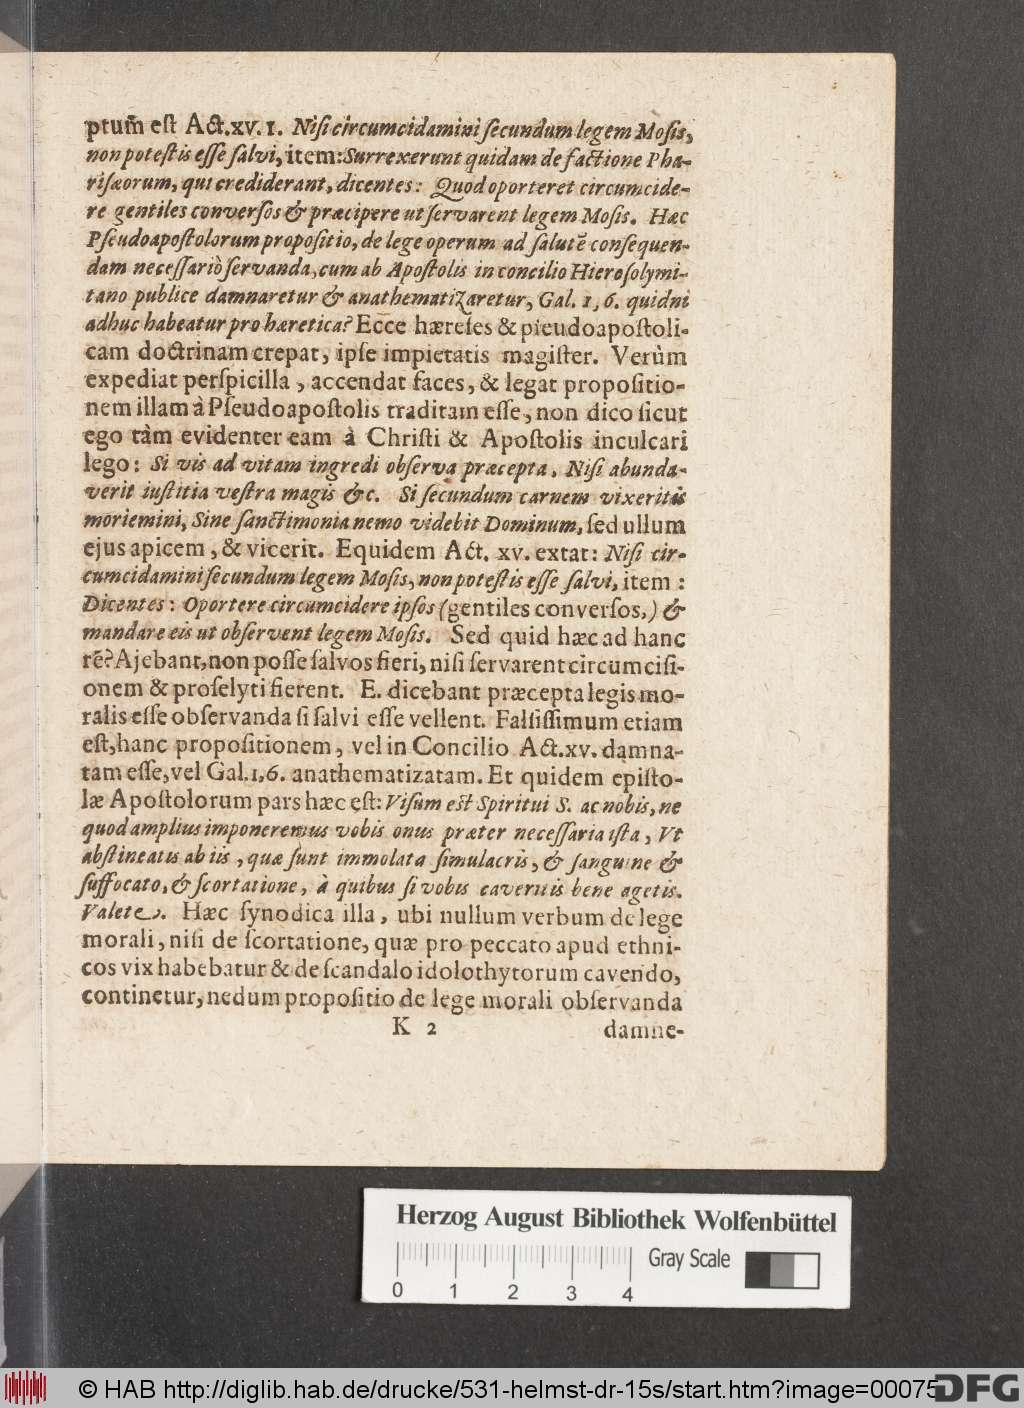 ptum̃ eſt Act.xv. 1. Niſi circumcidamini ſecundum legem Moſis,
non poteſtis eſſe ſalvi, item: Surrexerunt quidam de factione Pha-
riſæorum, qui crediderant, dicentes: Quod oporteret circumcide-
re gentiles converſos & præcipere ut ſervarent legem Moſis. Hæc
Pſeudoapoſtolorum propoſitio, de lege operum ad ſalutẽ conſequen-
dam neceſſariò ſervanda, cum ab Apoſtolis in concilio Hieroſolymi-
tano publice damnaretur & anathematizaretur, Gal. 1, 6. quidni
adhuc habeatur pro hæretica? Ecce hæreſes & pſeudoapoſtoli-
cam doctrinam crepat, ipſe impietatis magiſter. Verùm
expediat perſpicilla, accendat faces, & legat propoſitio-
nem illam à Pſeudoapoſtolis traditam eſſe, non dico ſicut
ego tàm evidenter eam à Chriſti & Apoſtolis inculcari
lego: Si vis ad vitam ingredi obſerva præcepta. Niſi abunda-
verit iuſtitia veſtra magis &c. Si ſecundum carnem vixeritis
moriemini, Sine ſanctimonia nemo videbit Dominum, ſed ullum
ejus apicem, & vicerit. Equidem Act. xv. extat: Niſi cir-
cumcidamini ſecundum legem Moſis, non poteſtis eſſe ſalvi, item:
Dicentes: Oportere circumcidere ipſos (gentiles converſos,) &
mandare eis ut obſervent legem Moſis. Sed quid hæc ad hanc
rẽ? Ajebant, non poſſe ſalvos fieri, niſi ſervarent circumciſi-
onem & proſelyti fierent. E. dicebant præcepta legis mo-
ralis eſſe obſervanda ſi ſalvi eſſe vellent. Falſiſſimum etiam
eſt, hanc propoſitionem, vel in Concilio Act.xv. damna-
tam eſſe, vel Gal.1,6. anathematizatam. Et quidem epiſto-
læ Apoſtolorum pars hæc eſt: Viſum eſt Spiritui S. ac nobis, ne
quod amplius imponeremus vobis onus præter neceſſaria iſta, Vt
abſtineatis ab iis, quæ ſunt immolata ſimulacris, & ſanguine &
ſuffocato, & ſcortatione, à quibus ſi vobis caveritis bene agetis.
Valete. Hæc ſynodica illa, ubi nullum verbum de lege
morali, niſi de ſcortatione, quæ pro peccato apud ethni-
cos vix habebatur & de ſcandalo idolothytorum cavendo,
continetur, nedum propoſitio de lege morali obſervanda
K 2 damne-
Herzog August Bibliothek Wolfenbüttel
Gray Scale
0 1 2 3 4
© HAB http://diglib.hab.de/drucke/531-helmst-dr-15s/start.htm?image=00075
DFG